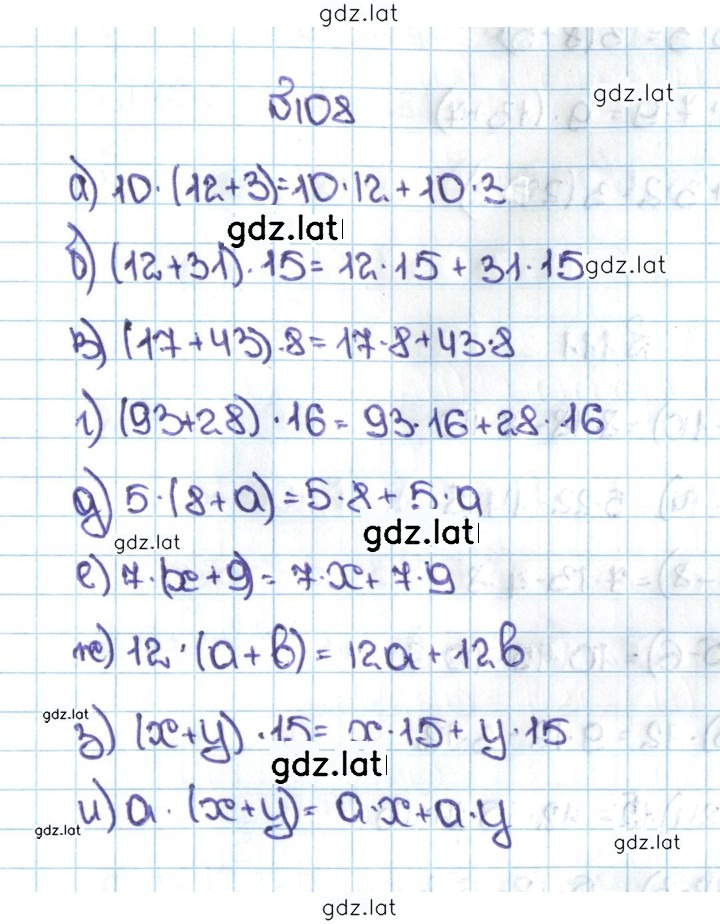 gdz.lat
gdz.lat
№108
а) 10·(12+3)=10·12+10·3
gdz.lat
б) (12+31)·15=12·15+31·15
gdz.lat
в) (17+43)·8=17·8+43·8
г) (93+28)·16=93·16+28·16
д) 5·(8+a)=5·8+5·a
gdz.lat
gdz.lat
е) 7·(x+9)=7·x+7·9
ж) 12·(a+b)=12a+12b
gdz.lat
з) (x+y)·15=x·15+y·15
gdz.lat
и) a·(x+y)=a·x+a·y
gdz.lat
gdz.lat
gdz.lat